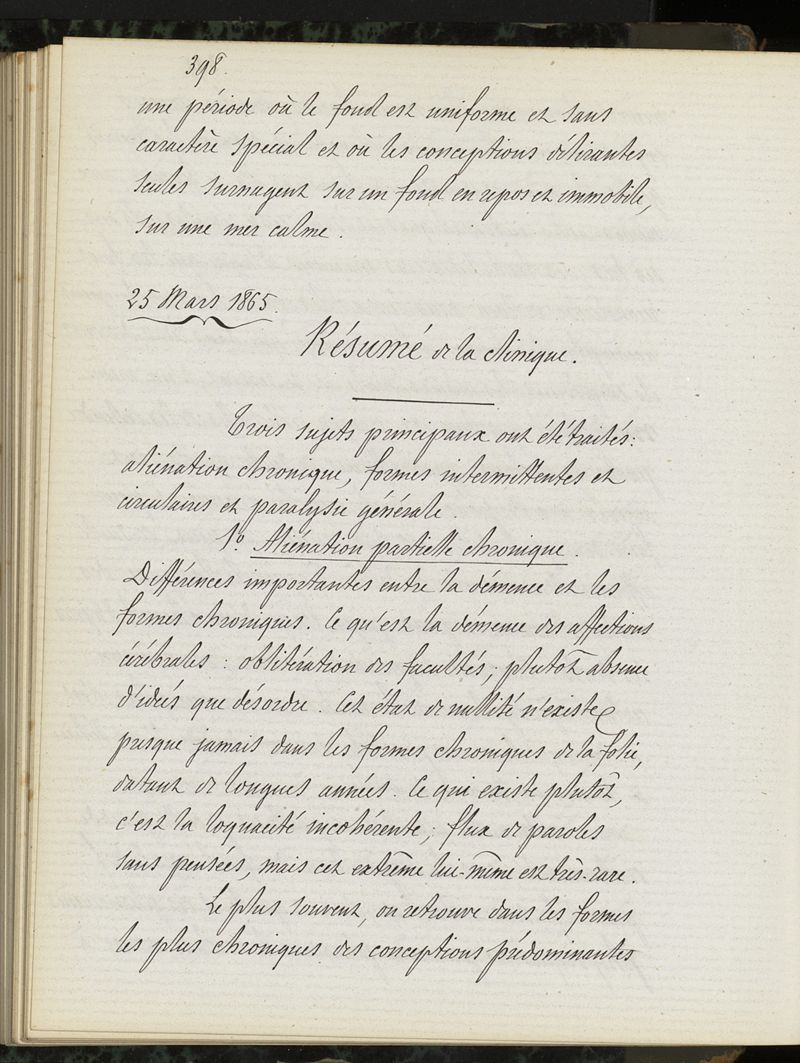 398.
une période où le fond est uniforme et sans
caractère spécial et où les conceptions délirantes
seules surnagent sur un fond en repos et immobile,
sur une mer calme.
25 Mars 1865.
Résumé de la clinique.
Trois sujets principaux ont été traités:
aliénation chronique, formes intermittentes et
circulaires et paralysie générale.
1º Aliénation partielle chronique.
Différences importantes entre la démence et les
formes chroniques. Ce qu'est la démence des affections
cérébrales : oblitération des facultés; plutôt absence
d'idées que désordre. Cet état de nullité n'existe
presque jamais dans les formes chroniques de la folie,
datant de longues années. Ce qui existe plutôt,
c'est la loquacité incohérente; flux de paroles
sans pensées, mais cet extrême lui-même est très-rare.
Le plus souvent, on retrouve dans les formes
les plus chroniques des conceptions prédominantes